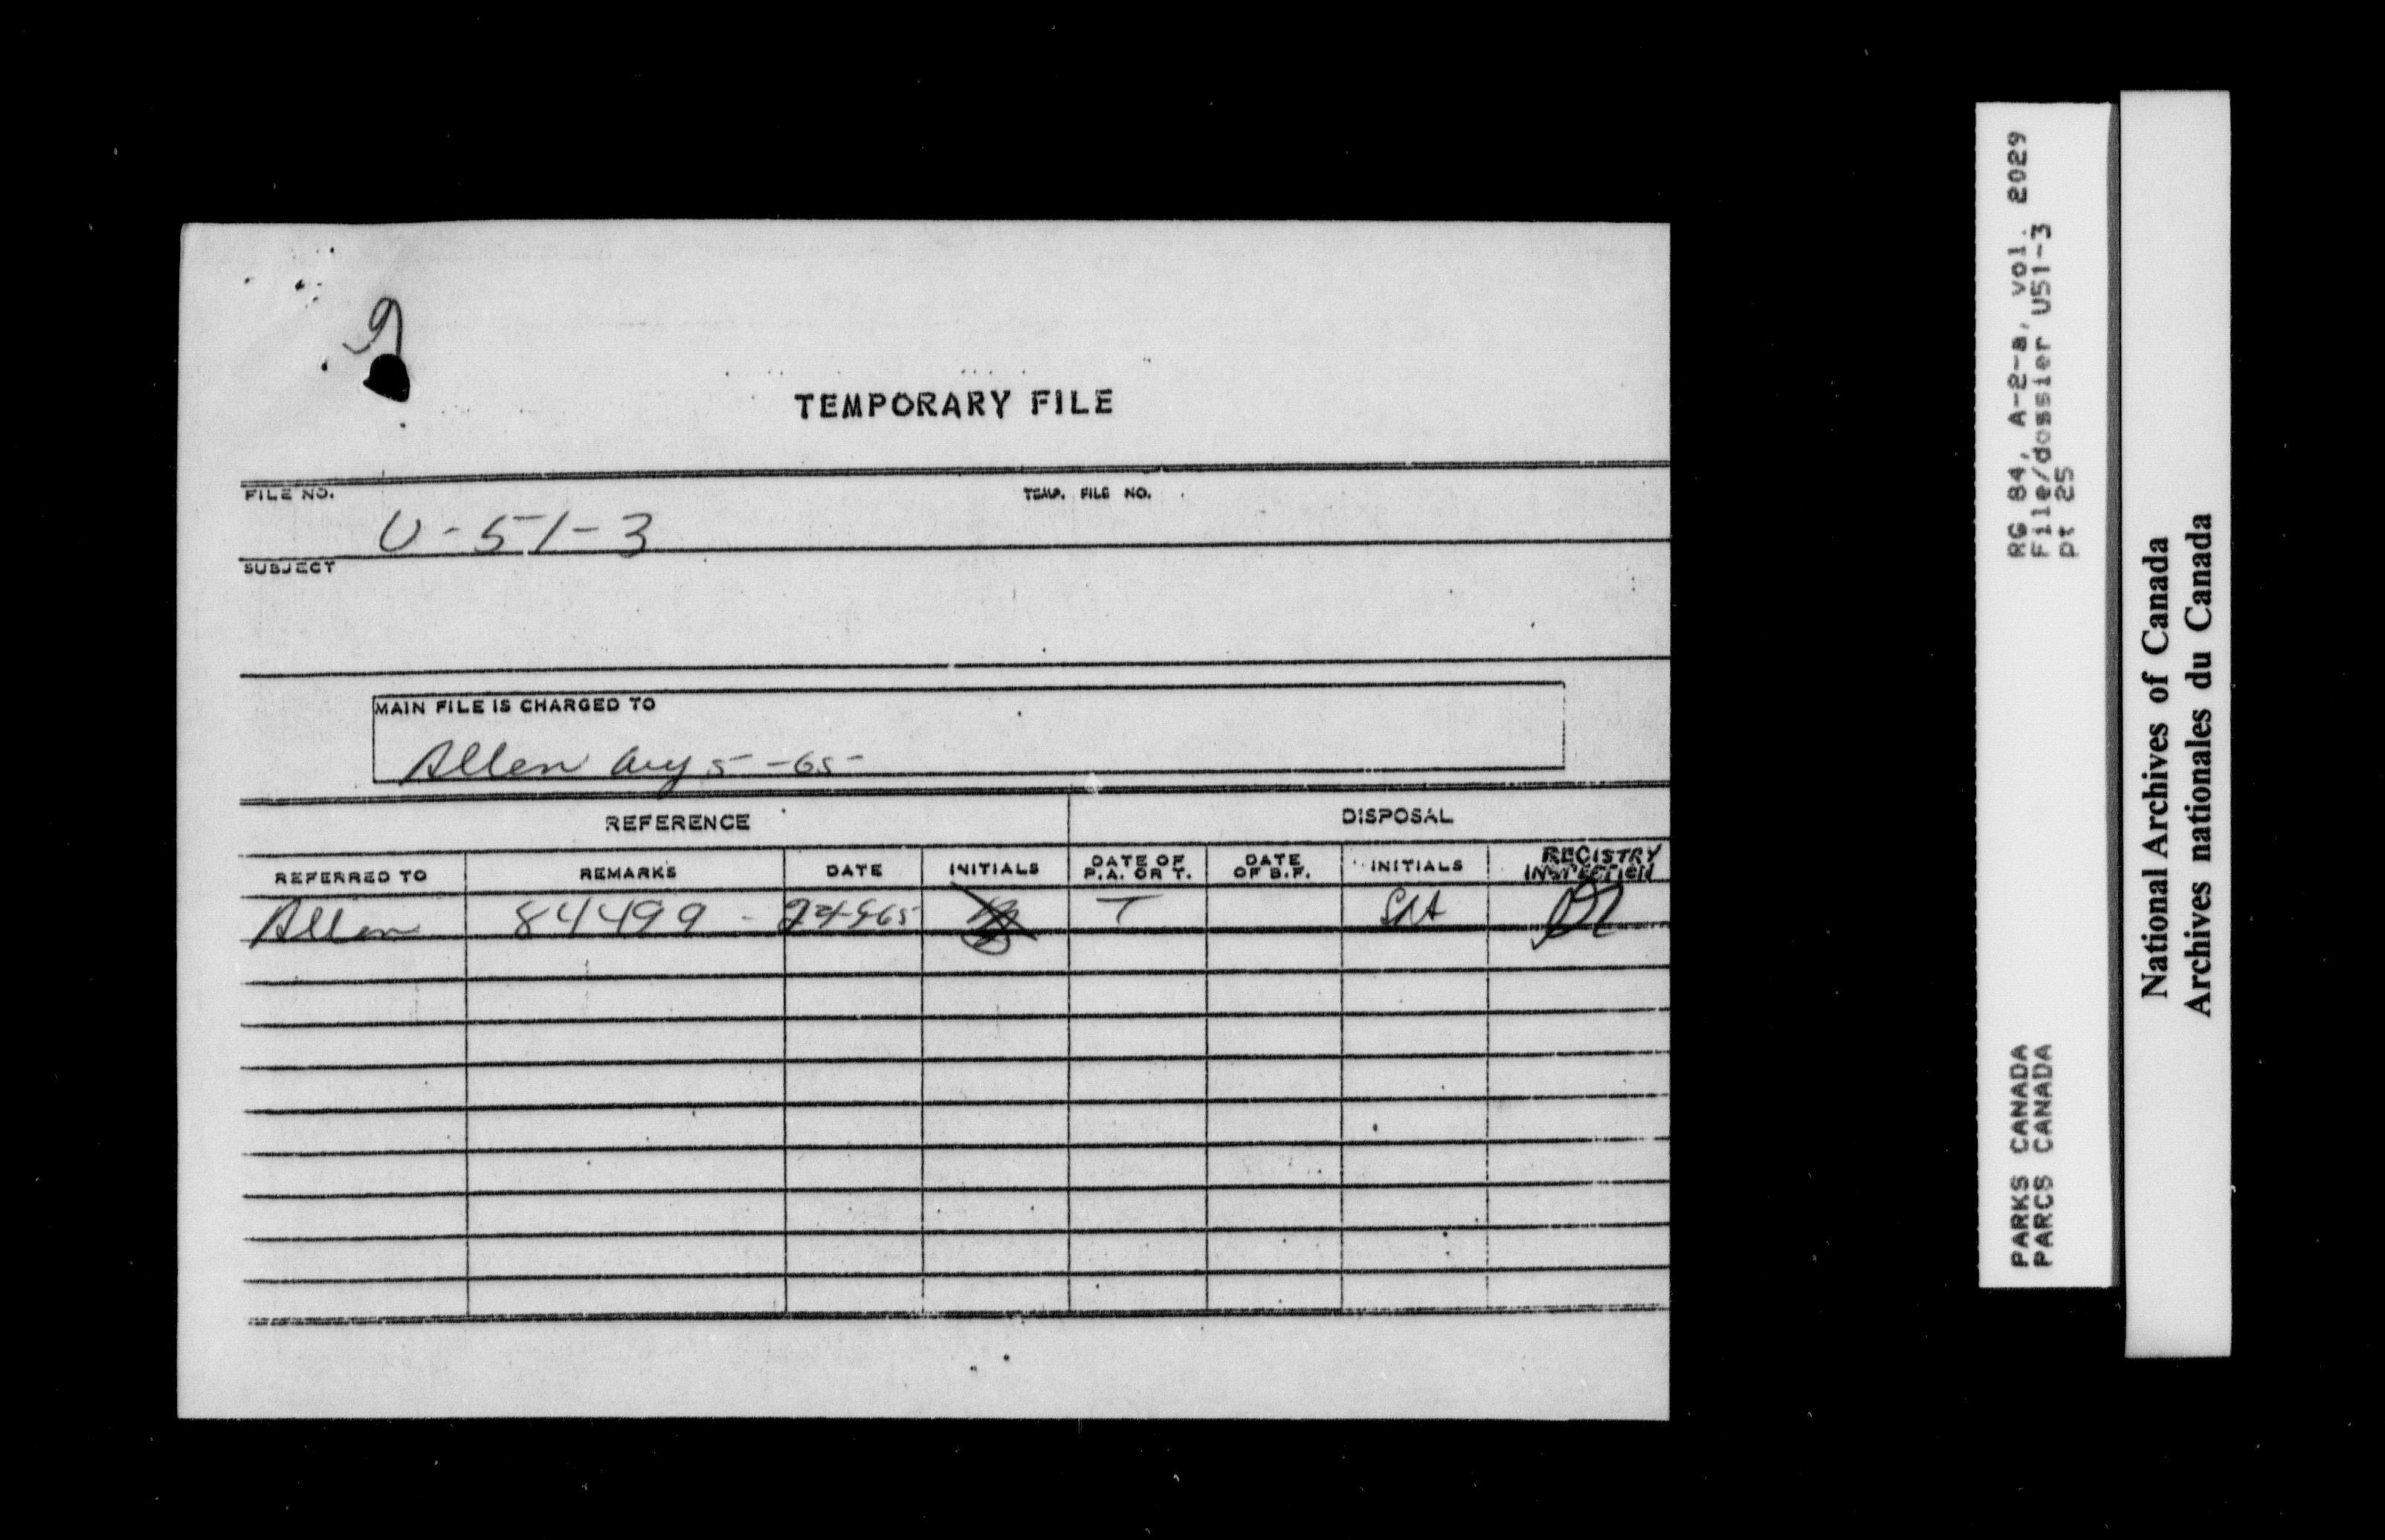 9
TEMPORARY FILE
FILE NO. TEMP. FILE NO.
U-51-3
SUBJECT
MAIN FILE IS CHARGED TO
Allen Aug 5-65
REFERENCE DISPOSAL
REFERRED TO REMARKS DATE INITIALS DATE OF P.A. OR T. DATE OF B.F. INITIALS REGISTRY INSPECTION
Allen 84499 - T
RG 84, A-2-a, vol. 2029
File/dossier U51-3
pt 25
PARKS CANADA
PARCS CANADA
National Archives of Canada
Archives nationales du Canada